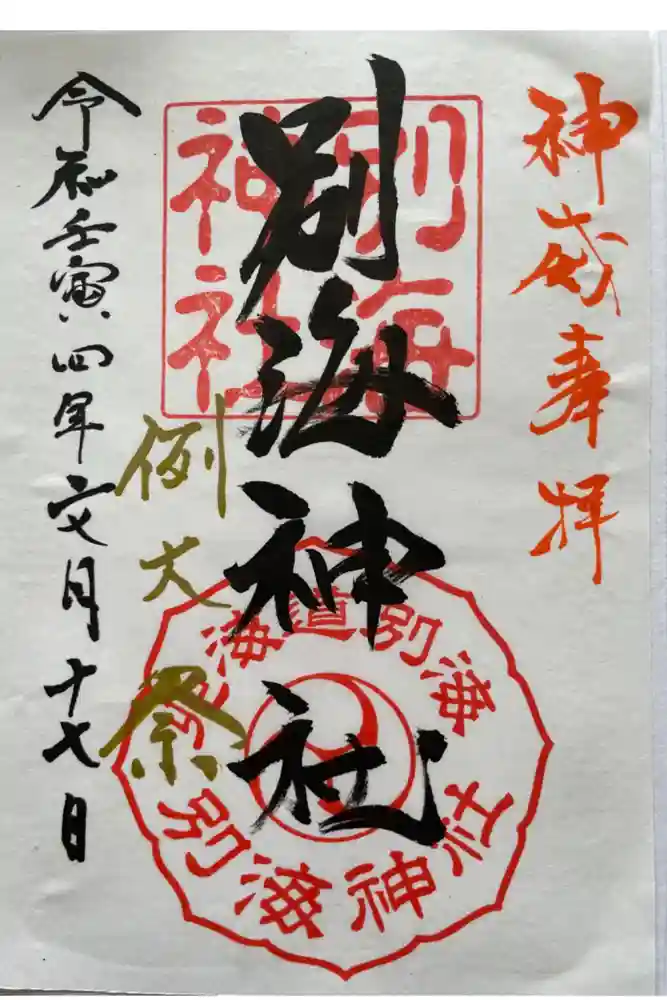 神威奉拝
別海神社
別海
神社
北海道別海
別海神社
例大祭
令和壬寅四年文月十七日